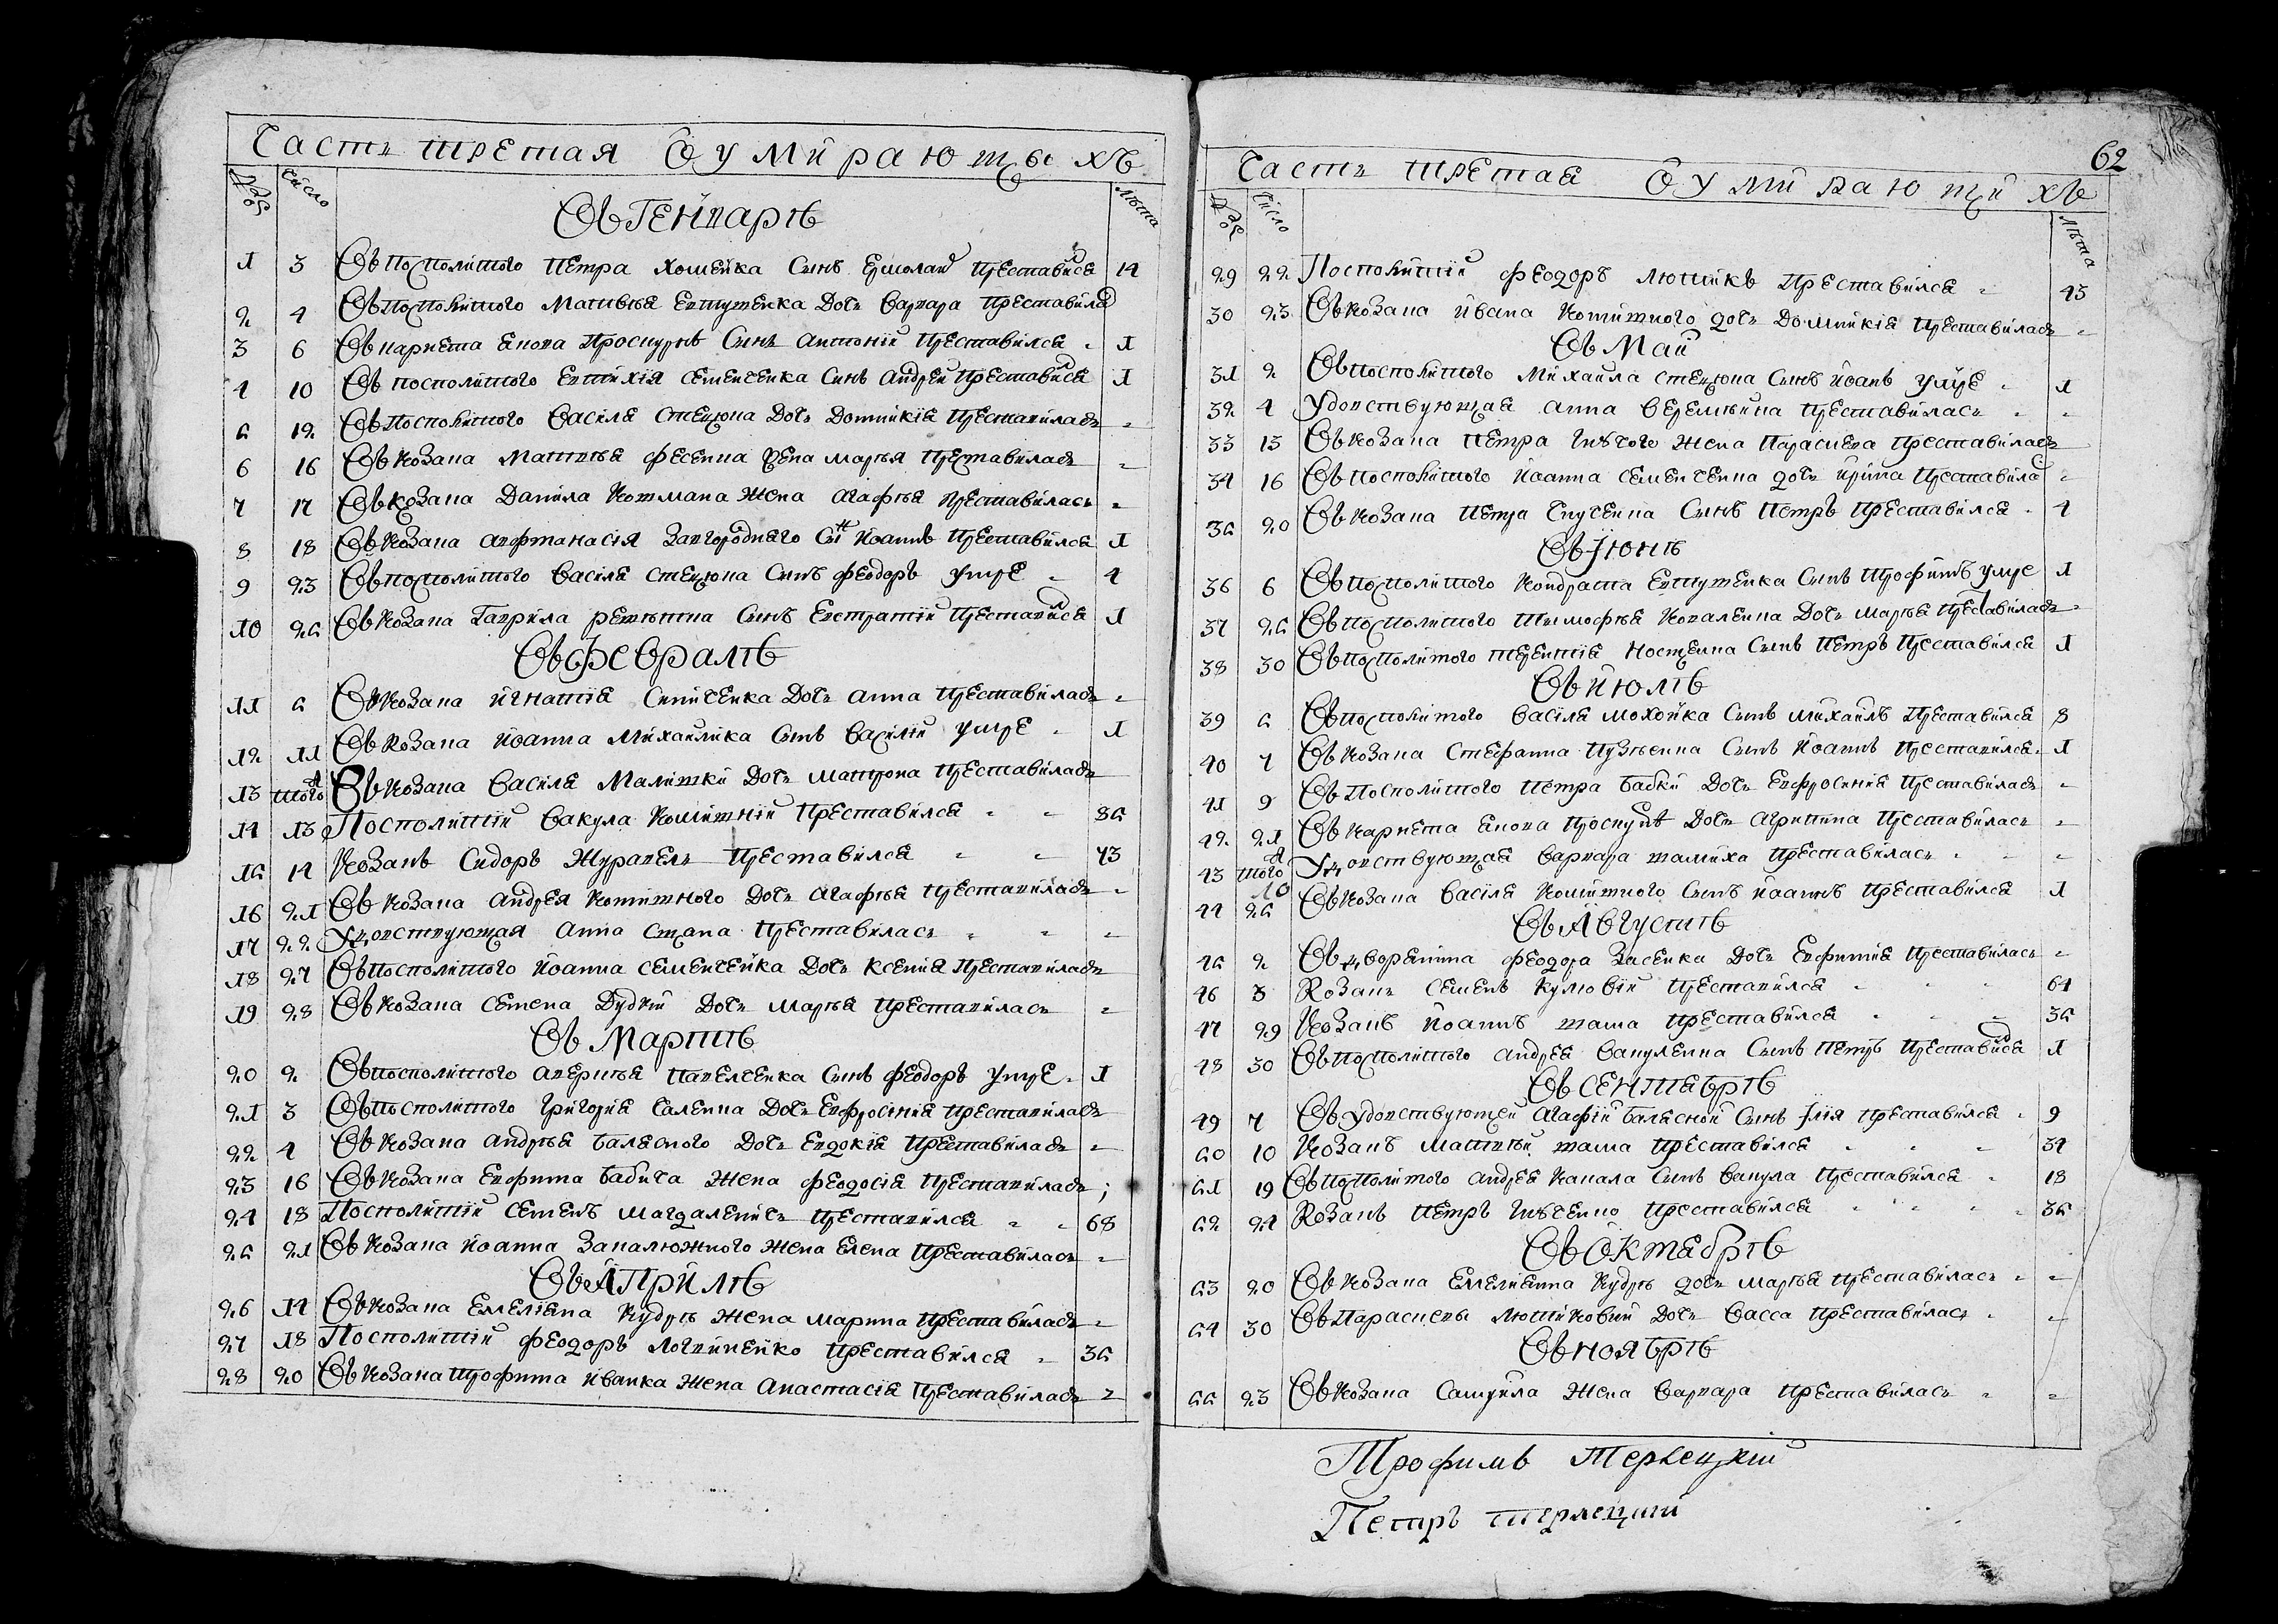 Часть третая О умирающыхъ
Число
Лѣта
Въ Генварѣ
1 3 Въ посполитого Петра Хоменка Сынъ Ермолай преставился 14
2 4 Въ посполитого Матвѣя Евтушенка Дочь Варвара преставилас
3 6 Въ Сынъ Антоній преставился 1
4 10 Въ посполитого Евтихія Семенченка Синъ Андрей преставился 1
5 12 Въ посполитого Василя Стецюна Дочь Домникія преставилась
6 16 Въ козака Матвѣя Фесенка Марья преставилась
7 17 Въ козака Данила Котмана жена Агафія преставилась
8 18 Въ козака Афтанасія Загородного Сынъ Іоаннъ преставился 1
9 23 Въ посполитого Василя Стецюна Синъ Феодоръ умре 4
10 25 Въ козака Гаврила Решетка Синъ Евстратій преставился 1
Въ Февралѣ
11 5 Въ козака Игнатія Синиченка Дочь Анна преставилась
12 11 Въ козака Іоанна Михайлика Сынъ Василій умре 1
13 тогож Въ козака Василя Дочь Матрона преставилась
14 13 Посполитій Вакула Комитній преставился 85
15 14 Козакъ Сидоръ Журавель преставился 43
16 21 Въ козака Андрея Комитного Дочь Агафія преставилась
17 22 Удовствующая Анна преставилась
18 27 Въ посполитого Іоанна Семенченка Дочь Ксенія преставилась
19 28 Въ козака Семена Дудки Дочь Марья преставилась
Въ Мартѣ
20 2 Въ посполитого Аверкія Павелченка Синъ Феодоръ умре 1
21 3 Въ посполитого Григорія Дочь Евфросинія преставилась
22 4 Въ козака Андрѣя Баласного Дочь Евдокія преставилась
23 16 Въ козака Евфима Бабича жена Феодосія преставилась
24 18 Посполитій Семенъ Магдаленичъ преставился 68
25 21 Въ козака Іоанна Закалюжного жена Елена преставилась
Въ Априлѣ
26 14 Въ козака Емеліяна Кудрѣ жена Марина преставилась
27 18 Посполитій Феодоръ Логвиненко преставился 35
28 20 Въ козака Трофима Иванка жена Анастасія преставилась
62
Часть третая О умирающихъ
Число
Лѣта
29 22 Посполитій Феодоръ Лютикъ преставился 43
30 23 Въ козака Ивана Комитного дочь Домникія преставилась
Въ Маи
31 2 Въ посполитого Михаила Стецюна Сынъ Іоанъ умре 1
32 4 Удовствующая Анна преставилась
33 13 Въ козака Петра Гнѣчого жена Параскева преставилась
34 16 Въ посполитого Іоанна Семенченка дочь Ирина преставилас
35 20 Въ козака Петра Сынъ Петръ преставился 4
Въ Іюнѣ
36 6 Въ посполитого Кондрата Евтушенка Сынъ Трофимъ умре 1
37 25 Въ посполитого Тимофѣя Коваленка Дочь Марья преставилась
38 30 Въ посполитого Терентія Костенка Сынъ Петръ преставился 1
Въ Июлѣ
39 5 Въ посполитого Василя Мохойка Сынъ Михаилъ преставился 8
40 7 Въ козака Стефана Сынъ Іоаннъ преставился 1
41 9 Въ посполитого Петра Бабки Дочь Евфросинія преставилась
42 21 Въ Дочь Агрипина преставилась
43 тогож Удовствующая Варвара преставилась
44 25 Въ козака Василя Комитного Сынъ Іоаннъ преставился 1
Въ Августѣ
45 2 Въ дворянина Феодора Засенка Дочь Евфимія преставилась
46 3 Козакъ Семенъ Кулювій преставился 64
47 29 Козакъ Іоаннъ преставился 35
48 30 Въ посполитого Андрея Вакуленка Сынъ Петръ преставился 1
Въ Сентябрѣ
49 7 Въ удовствующей Агафіи Баласной Синъ Ілія преставился 9
50 10 Козакъ Матвѣй преставился 34
51 19 Въ посполитого Андрея Синъ Вакула преставился 18
52 24 Козакъ Петръ Гнѣченко преставился 35
Въ Октябрѣ
53 20 Въ козака Емеліянна Кудрѣ дочь Марья преставилась
54 30 Въ Параскевы Лютиковни Дочь Васса преставилась
Въ Ноябрѣ
55 23 Въ козака Самуйла жена Варвара преставилась
Трофимъ Терлецкій
Петръ Терлецкій